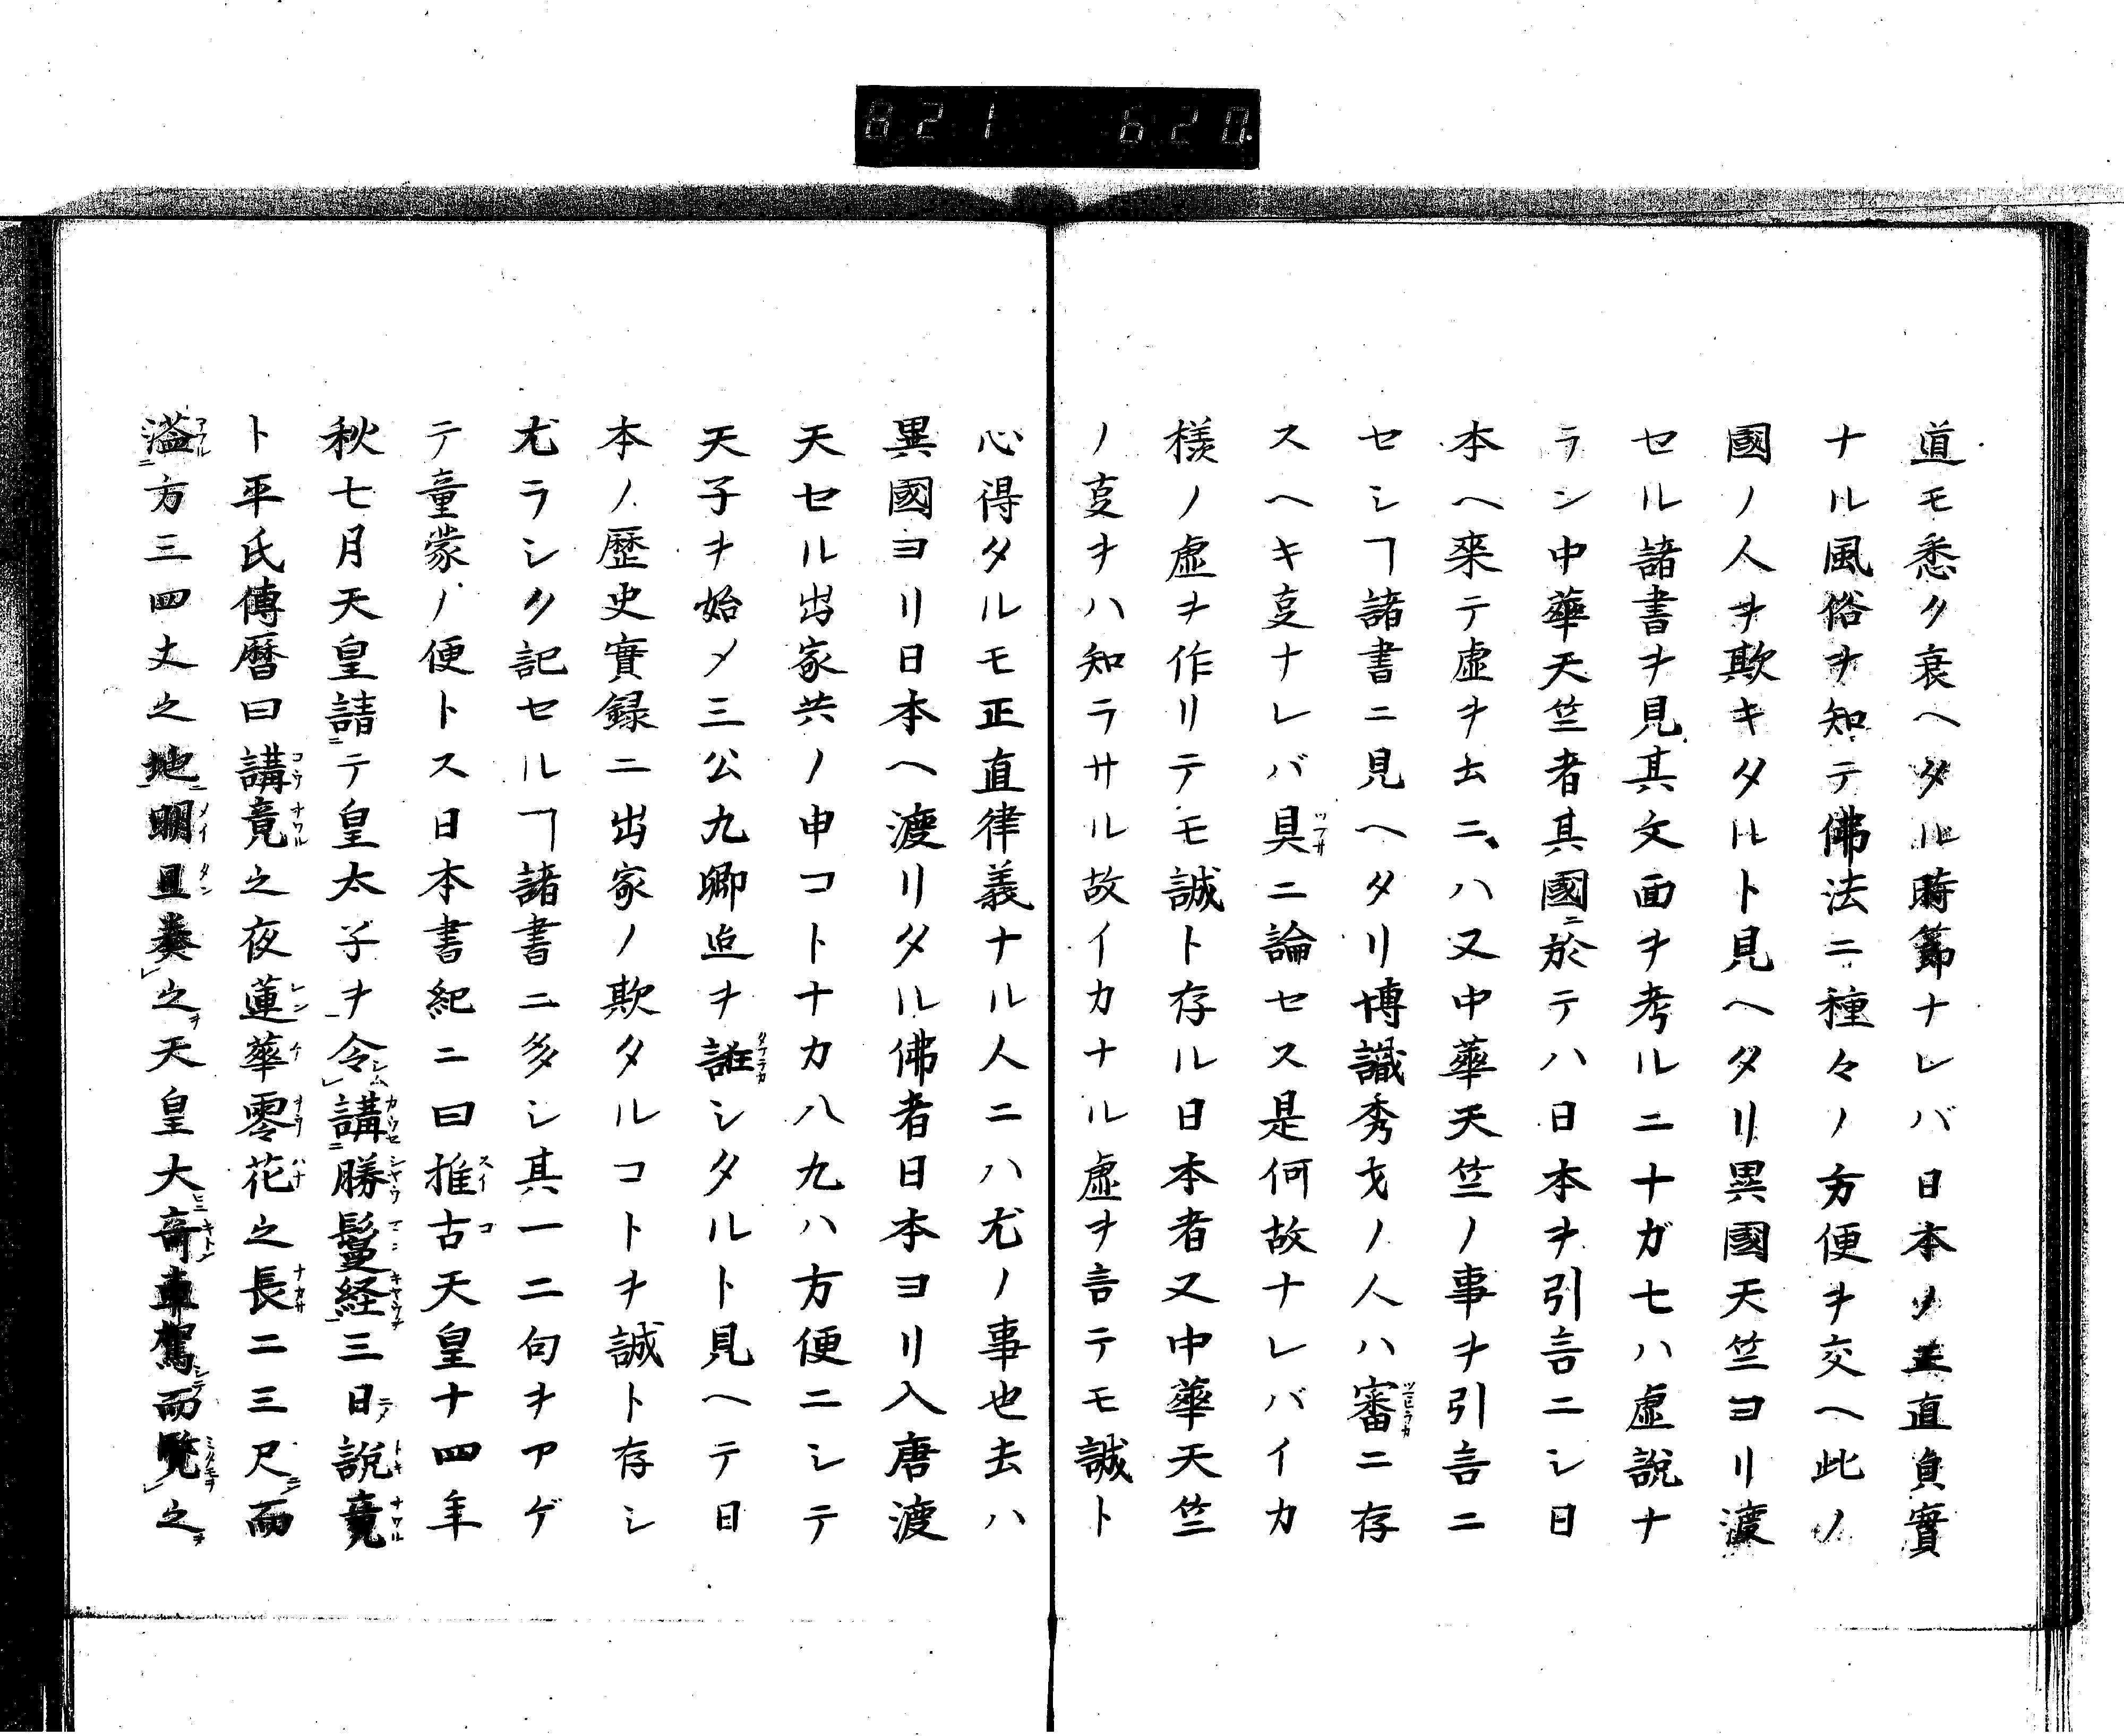 821 620
道モ悉ク衰ヘタル時節ナレバ日本ノ正直貞實
ナル風俗ヲ知テ佛法ニ種々ノ方便ヲ交ヘ此ノ
國ノ人ヲ欺キタルト見ヘタリ異國天竺ヨリ渡
セル諸書ヲ見其文面ヲ考ルニ十ガ七ハ虚説ナ
ラン中華天竺者其國ニ於テハ日本ヲ引言ニシ日
本ヘ来テ虚ヲ云ニハ又中華天竺ノ事ヲ引言ニ
セシヿ諸書ニ見ヘタリ博識秀才ノ人ハ審ニ存
スヘキ㕝ナレバ具ニ論セス是何故ナレバイカ
樣ノ虚ヲ作リテモ誠ト存ル日本者又中華天竺
ノ㕝ヲハ知ラサル故イカナル虚ヲ言テモ誠ト
心得タルモ正直律義ナル人ニハ尤ノ事也去ハ
異國ヨリ日本ヘ渡リタル佛者日本ヨリ入唐渡
天セル出家共ノ申コト十カ八九ハ方便ニシテ
天子ヲ始メ三公九卿迠ヲ誑シタルト見ヘテ日
本ノ歴史實録ニ出家ノ欺タルコトヲ誠ト存シ
尤ラシク記セルヿ諸書ニ多シ其一二句ヲアゲ
テ童蒙ノ便トス日本書紀ニ曰推古天皇十四年
秋七月天皇請テ皇太子ヲ令講勝鬘経三日説竟
ト平氏傳暦曰講竟之夜蓮華零花之長二三尺而
溢方三四丈之地明旦奏之天皇大奇車駕而覧之